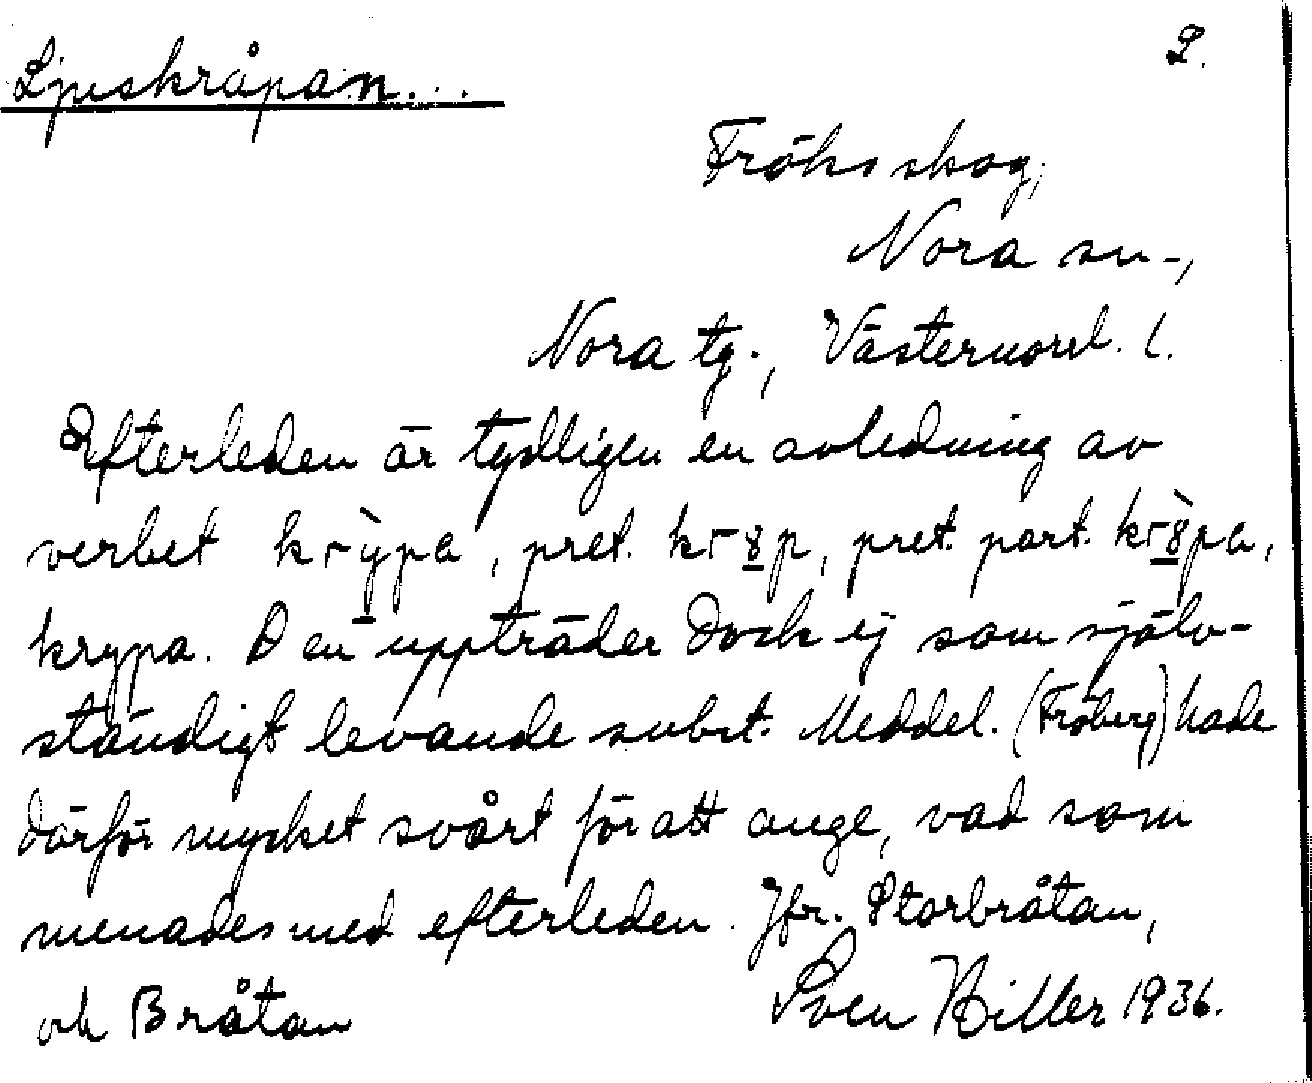 Ljuskråpan...
2.
Fröksskog,
Nora sn.,
Nora tg., Västernorrl. l.
Efterleden är tydligen en avledning av
verbet krỳpa, pret. kr8p, pret. part. kr8̀pa,
krypa. Den uppträder dock ej som själv-
ständigt levande subst. Meddel. (Fröberg) hade
därför mycket svårt för att ange, vad som
menades med efterleden. Jfr. Storbråtan,
och Bråtan
Sven Hiller 1936.